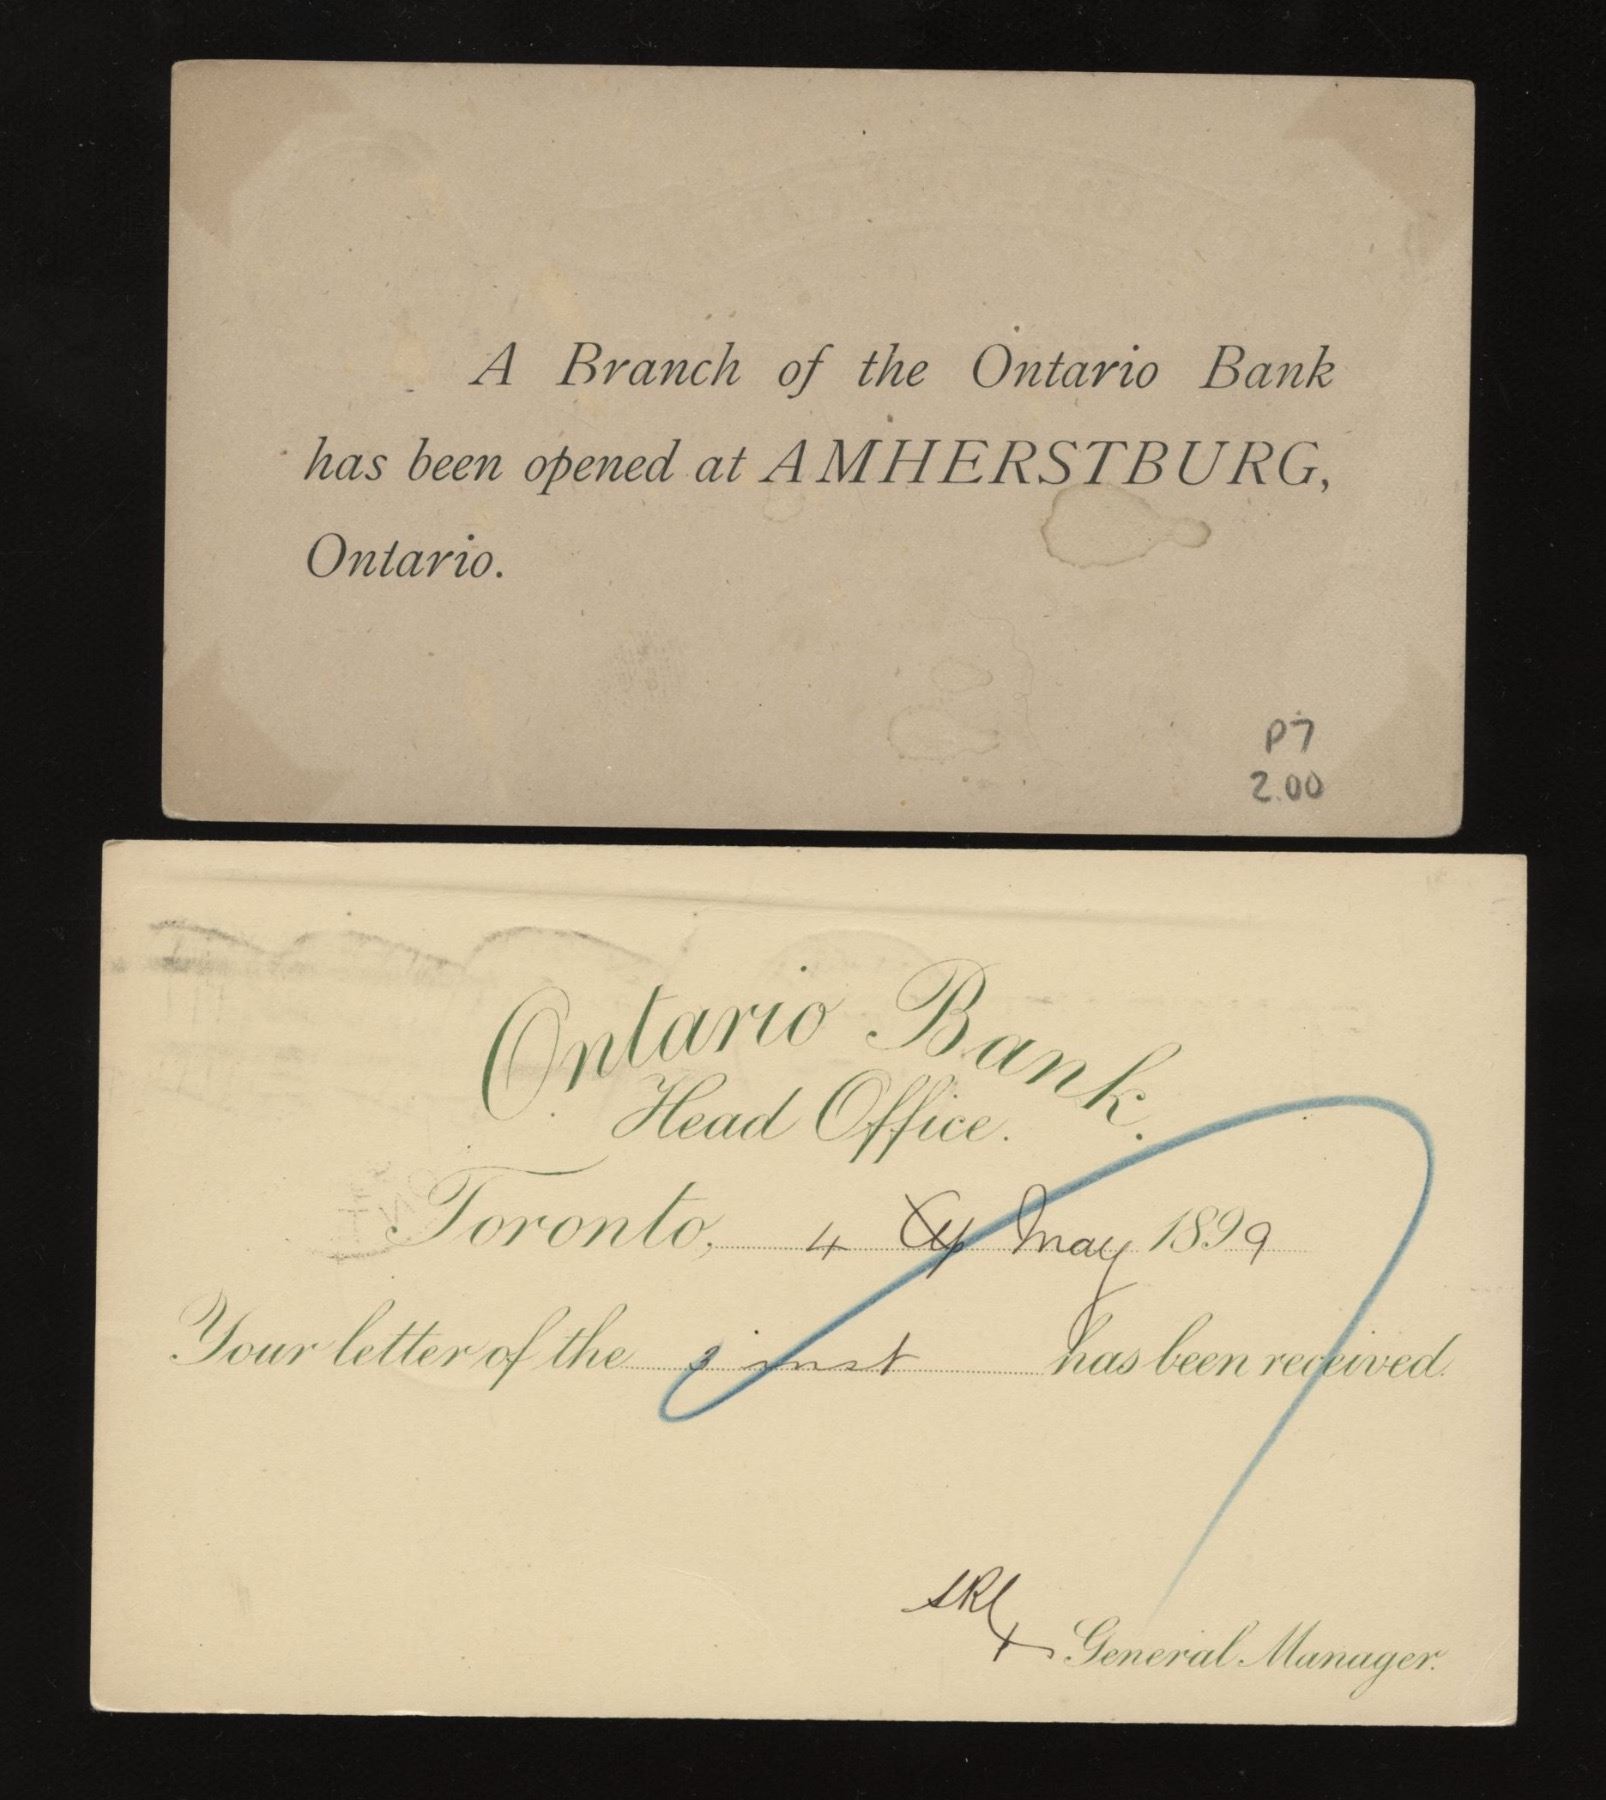 A Branch of the Ontario Bank
has been opened at AMHERSTBURG,
Ontario.
P7
2.00
Ontario Bank.
Head Office.
Toronto, 4 May 1899
Your letter of the 3 inst has been received.
General Manager.